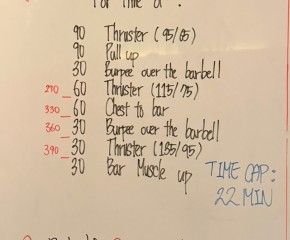 For Time of :
90 Thruster (95/65)
90 Pull up
30 Burpee over the barbell
270 60 Thruster (115/75)
330 60 Chest to bar
360 30 Burpee over the barbell
390 30 Thruster (135/95)
30 Bar Muscle up
TIME CAP:
22 MIN